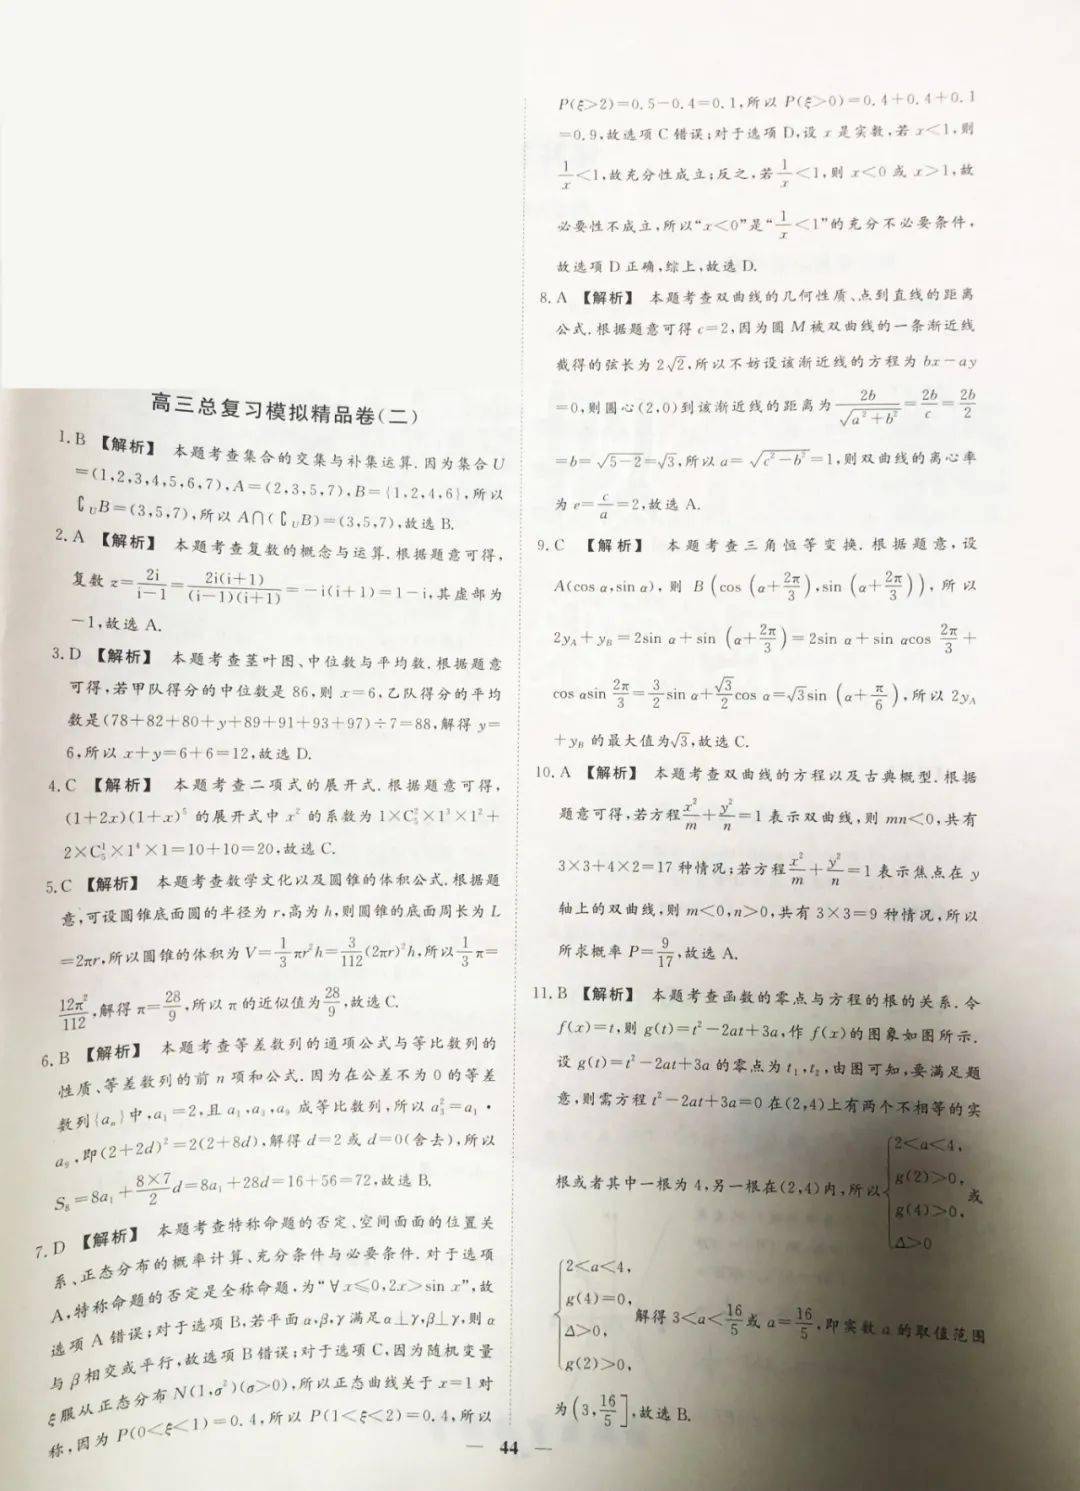 高三总复习模拟精品卷(二)
1.B 【解析】 本题考查集合的交集与补集运算.因为集合U
=(1,2,3,4,5,6,7),A=(2,3,5,7),B={1,2,4,6},所以
∁UB=(3,5,7),所以 A∩(∁UB)=(3,5,7),故选 B.
2.A 【解析】 本题考查复数的概念与运算.根据题意可得,
复数 z=2i/(i-1)=2i(i+1)/((i-1)(i+1))=-i(i+1)=1-i,其虚部为
-1,故选 A.
3.D 【解析】 本题考查茎叶图、中位数与平均数.根据题意
可得,若甲队得分的中位数是 86,则 x=6,乙队得分的平均
数是(78+82+80+y+89+91+93+97)÷7=88,解得 y=
6,所以 x+y=6+6=12,故选 D.
4.C 【解析】 本题考查二项式的展开式.根据题意可得,
(1+2x)(1+x)⁵ 的展开式中 x² 的系数为 1×C₅²×1³×1²+
2×C₅¹×1⁴×1=10+10=20,故选 C.
5.C 【解析】 本题考查数学文化以及圆锥的体积公式.根据题
意,可设圆锥底面圆的半径为 r,高为 h,则圆锥的底面周长为 L
=2πr,所以圆锥的体积为 V=1/3πr²h=3/112(2πr)²h,所以1/3π=
12π²/112,解得 π=28/9,所以 π 的近似值为28/9,故选 C.
6.B 【解析】 本题考查等差数列的通项公式与等比数列的
性质、等差数列的前 n 项和公式.因为在公差不为 0 的等差
数列{aₙ}中,a₁=2,且 a₁,a₃,a₉ 成等比数列,所以 a₃²=a₁·
a₉,即(2+2d)²=2(2+8d),解得 d=2 或 d=0(舍去),所以
S₈=8a₁+8×7/2d=8a₁+28d=16+56=72,故选 B.
7.D 【解析】 本题考查特称命题的否定、空间面面的位置关
系、正态分布的概率计算、充分条件与必要条件.对于选项
A,特称命题的否定是全称命题,为“∀x≤0,2x>sin x”,故
选项 A 错误;对于选项 B,若平面 α,β,γ 满足 α⊥γ,β⊥γ,则 α
与 β 相交或平行,故选项 B 错误;对于选项 C,因为随机变量
ξ服从正态分布 N(1,σ²)(σ>0),所以正态曲线关于 x=1 对
称,因为 P(0<ξ<1)=0.4,所以 P(1<ξ<2)=0.4,所以
P(ξ>2)=0.5-0.4=0.1,所以 P(ξ>0)=0.4+0.4+0.1
=0.9,故选项 C 错误;对于选项 D,设 x 是实数,若 x<1,则
1/x<1,故充分性成立;反之,若1/x<1,则 x<0 或 x>1,故
必要性不成立,所以“x<0”是“1/x<1”的充分不必要条件,
故选项 D 正确,综上,故选 D.
8.A 【解析】 本题考查双曲线的几何性质、点到直线的距离
公式.根据题意可得 c=2,因为圆 M 被双曲线的一条渐近线
截得的弦长为 2√2,所以不妨设该渐近线的方程为 bx-ay
=0,则圆心(2,0)到该渐近线的距离为2b/√(a²+b²)=2b/c=2b/2
=b=√(5-2)=√3,所以 a=√(c²-b²)=1,则双曲线的离心率
为 e=c/a=2,故选 A.
9.C 【解析】 本题考查三角恒等变换.根据题意,设
A(cos α,sin α),则 B(cos(α+2π/3),sin(α+2π/3)),所以
2yA+yB=2sin α+sin(α+2π/3)=2sin α+sin αcos 2π/3+
cos αsin 2π/3=3/2sin α+√3/2cos α=√3sin(α+π/6),所以 2yA
+yB 的最大值为√3,故选 C.
10.A 【解析】 本题考查双曲线的方程以及古典概型.根据
题意可得,若方程x²/m+y²/n=1 表示双曲线,则 mn<0,共有
3×3+4×2=17 种情况;若方程x²/m+y²/n=1 表示焦点在 y
轴上的双曲线,则 m<0,n>0,共有 3×3=9 种情况,所以
所求概率 P=9/17,故选 A.
11.B 【解析】 本题考查函数的零点与方程的根的关系.令
f(x)=t,则 g(t)=t²-2at+3a,作 f(x)的图象如图所示.
设 g(t)=t²-2at+3a 的零点为 t₁,t₂,由图可知,要满足题
意,则需方程 t²-2at+3a=0 在(2,4)上有两个不相等的实
根或者其中一根为 4,另一根在(2,4)内,所以{2<a<4, g(2)>0, g(4)>0, Δ>0 或
{2<a<4, g(4)=0, Δ>0, g(2)>0, 解得 3<a<16/5或 a=16/5,即实数 a 的取值范围
为(3,16/5],故选 B.
— 44 —